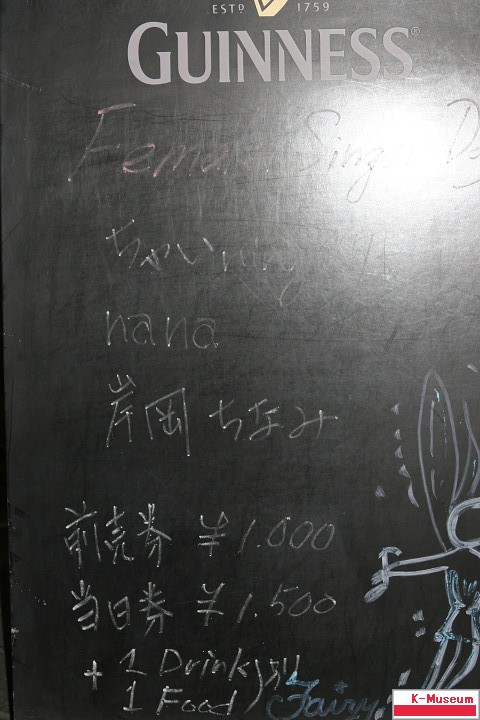 ESTD 1759
GUINNESS®
Female Singer
ちゃい
nana
片岡 ちなみ
前売券 ¥1.000
当日券 ¥1.500
+ 1 Drink
1 Food
Fairy
K-Museum